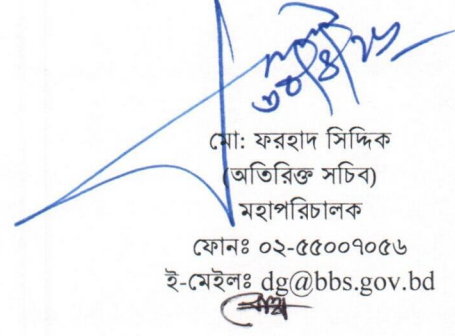 ৩০/৪/২৬
মো: ফরহাদ সিদ্দিক
(অতিরিক্ত সচিব)
মহাপরিচালক
ফোনঃ ০২-৫৫০০৭০৫৬
ই-মেইলঃ dg@bbs.gov.bd